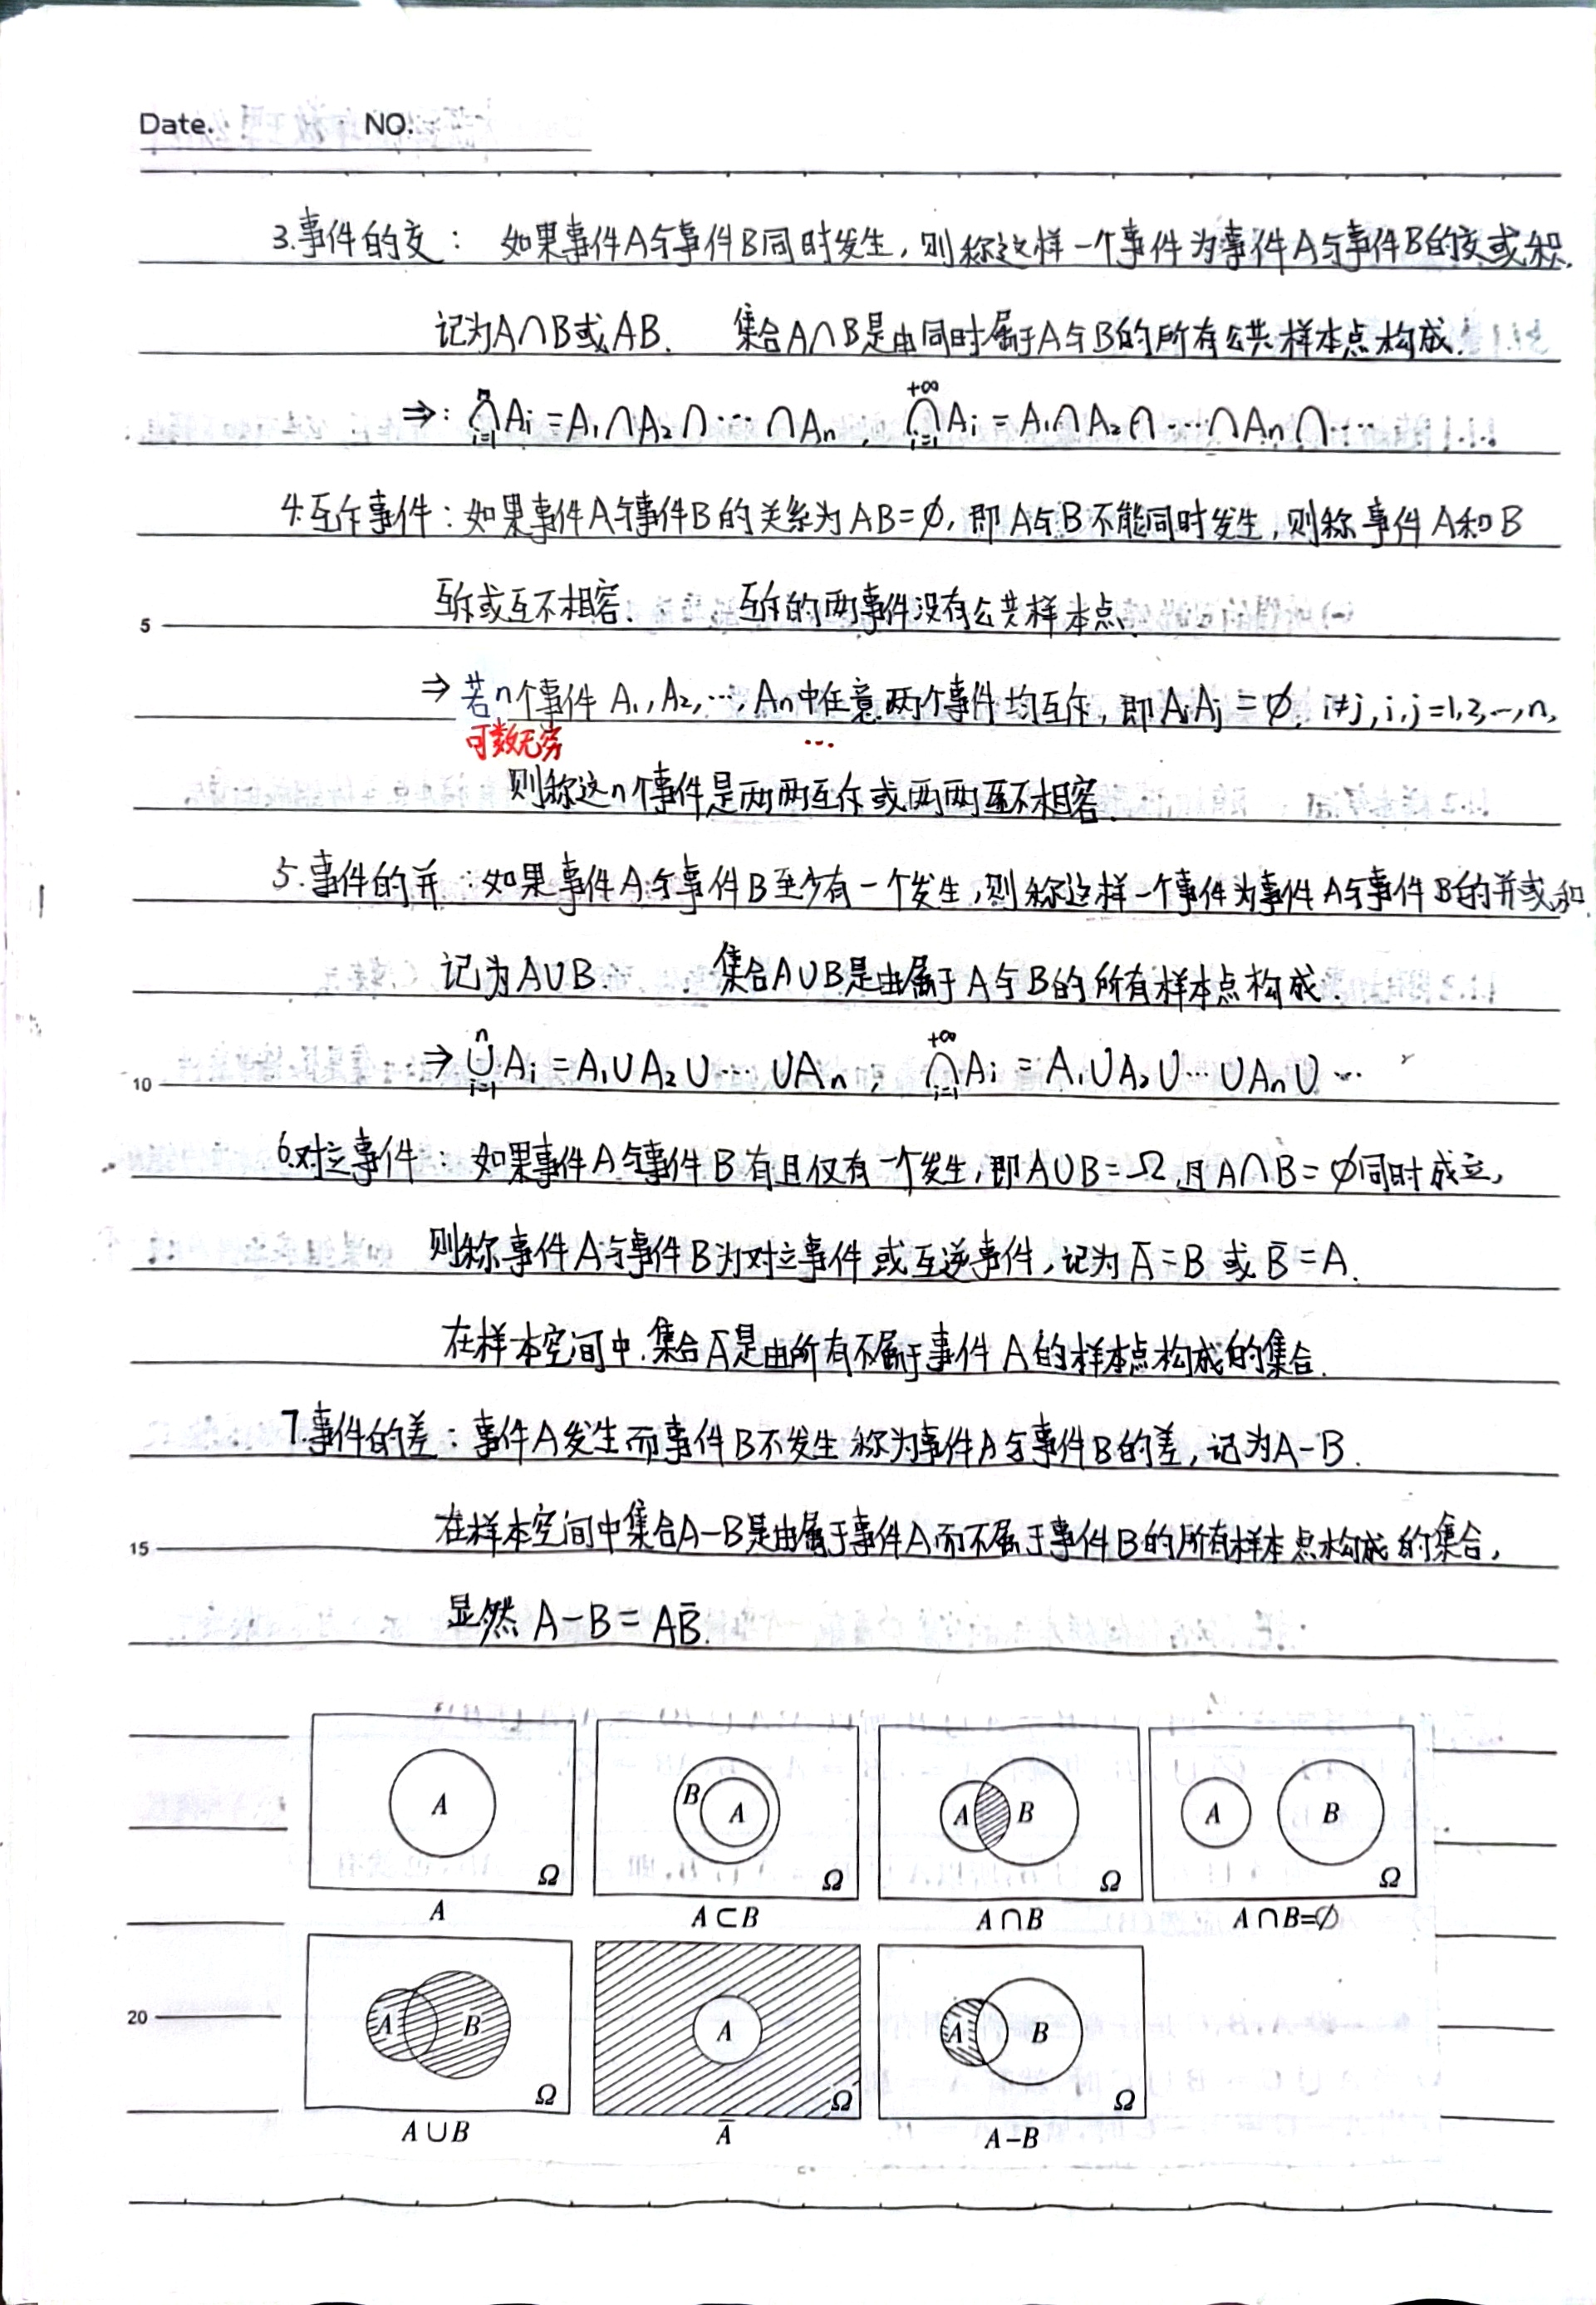 Date. NO.
3.事件的交: 如果事件A与事件B同时发生,则称这样一个事件为事件A与事件B的交或积.
记为A∩B或AB. 集合A∩B是由同时属于A与B的所有公共样本点构成.
⇒: ⋂ⁿᵢ₌₁Aᵢ=A₁∩A₂∩⋯∩Aₙ, ⋂⁺∞ᵢ₌₁Aᵢ=A₁∩A₂∩⋯∩Aₙ∩⋯
4.互斥事件:如果事件A与事件B的关系为AB=∅,即A与B不能同时发生,则称事件A和B
5 互斥或互不相容. 互斥的两事件没有公共样本点.
⇒若n个事件 A₁,A₂,⋯,Aₙ中任意两个事件均互斥,即AᵢAⱼ=∅, i≠j,i,j=1,2,⋯,n,
可数无穷 ⋯
则称这n个事件是两两互斥或两两互不相容.
5.事件的并:如果事件A与事件B至少有一个发生,则称这样一个事件为事件A与事件B的并或和.
记为A∪B. 集合A∪B是由属于A与B的所有样本点构成.
10 ⇒ ⋃ⁿᵢ₌₁Aᵢ=A₁∪A₂∪⋯∪Aₙ, ⋂⁺∞ᵢ₌₁Aᵢ=A₁∪A₂∪⋯∪Aₙ∪⋯
6.对立事件:如果事件A与事件B有且仅有一个发生,即A∪B=Ω且A∩B=∅同时成立,
则称事件A与事件B为对立事件或互逆事件,记为Ā=B或B̄=A.
在样本空间中.集合Ā是由所有不属于事件A的样本点构成的集合.
7.事件的差:事件A发生而事件B不发生称为事件A与事件B的差,记为A-B.
15 在样本空间中集合A-B是由属于事件A而不属于事件B的所有样本点构成的集合,
显然 A-B=AB̄.
A Ω B A Ω A B Ω A B Ω
A A⊂B A∩B A∩B=∅
20 A B Ω A Ω A B Ω
A∪B Ā A-B